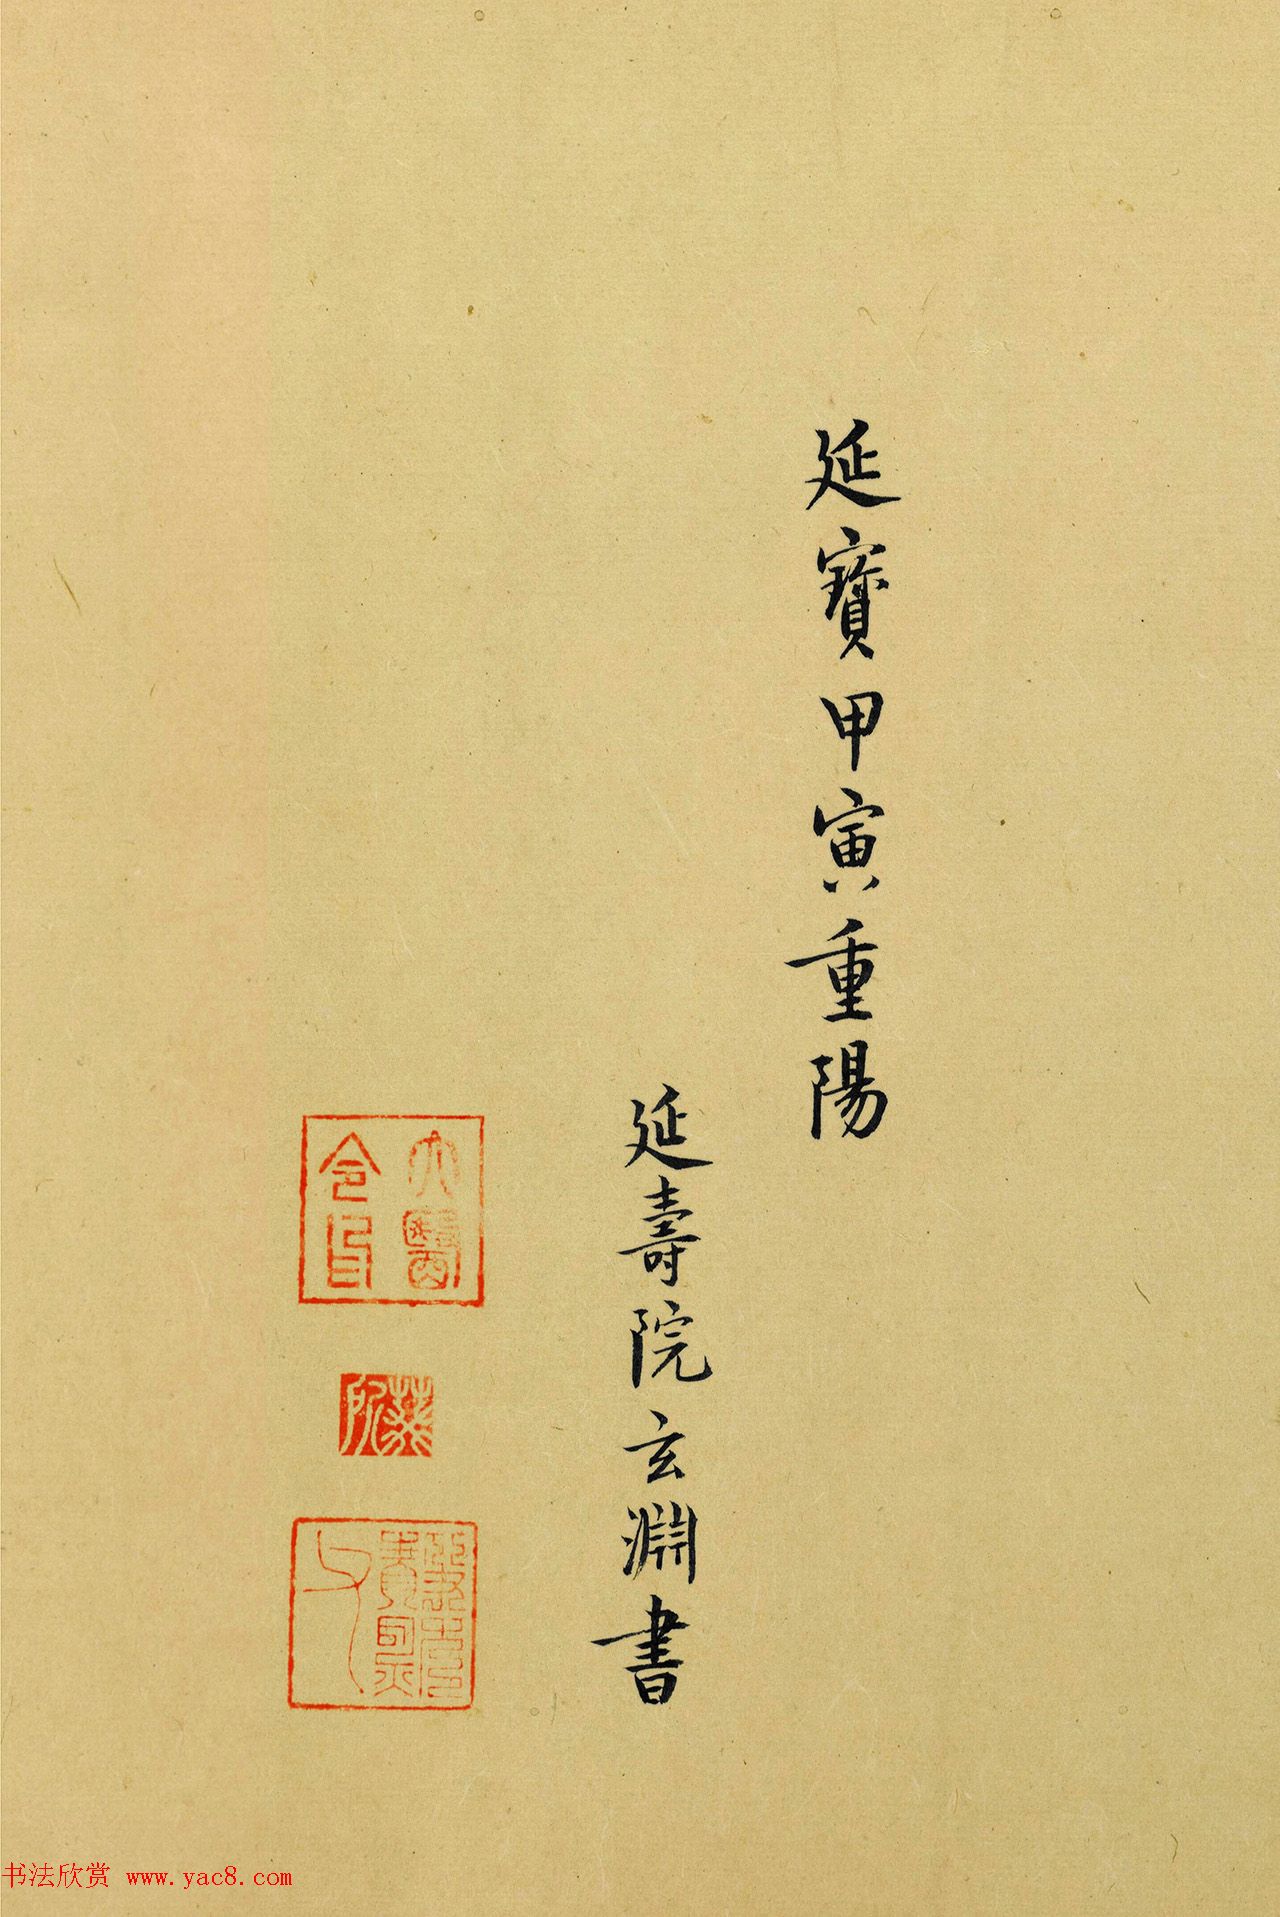 延寶甲寅重陽
延壽院玄淵書
大醫令印
书法欣赏 www.yac8.com